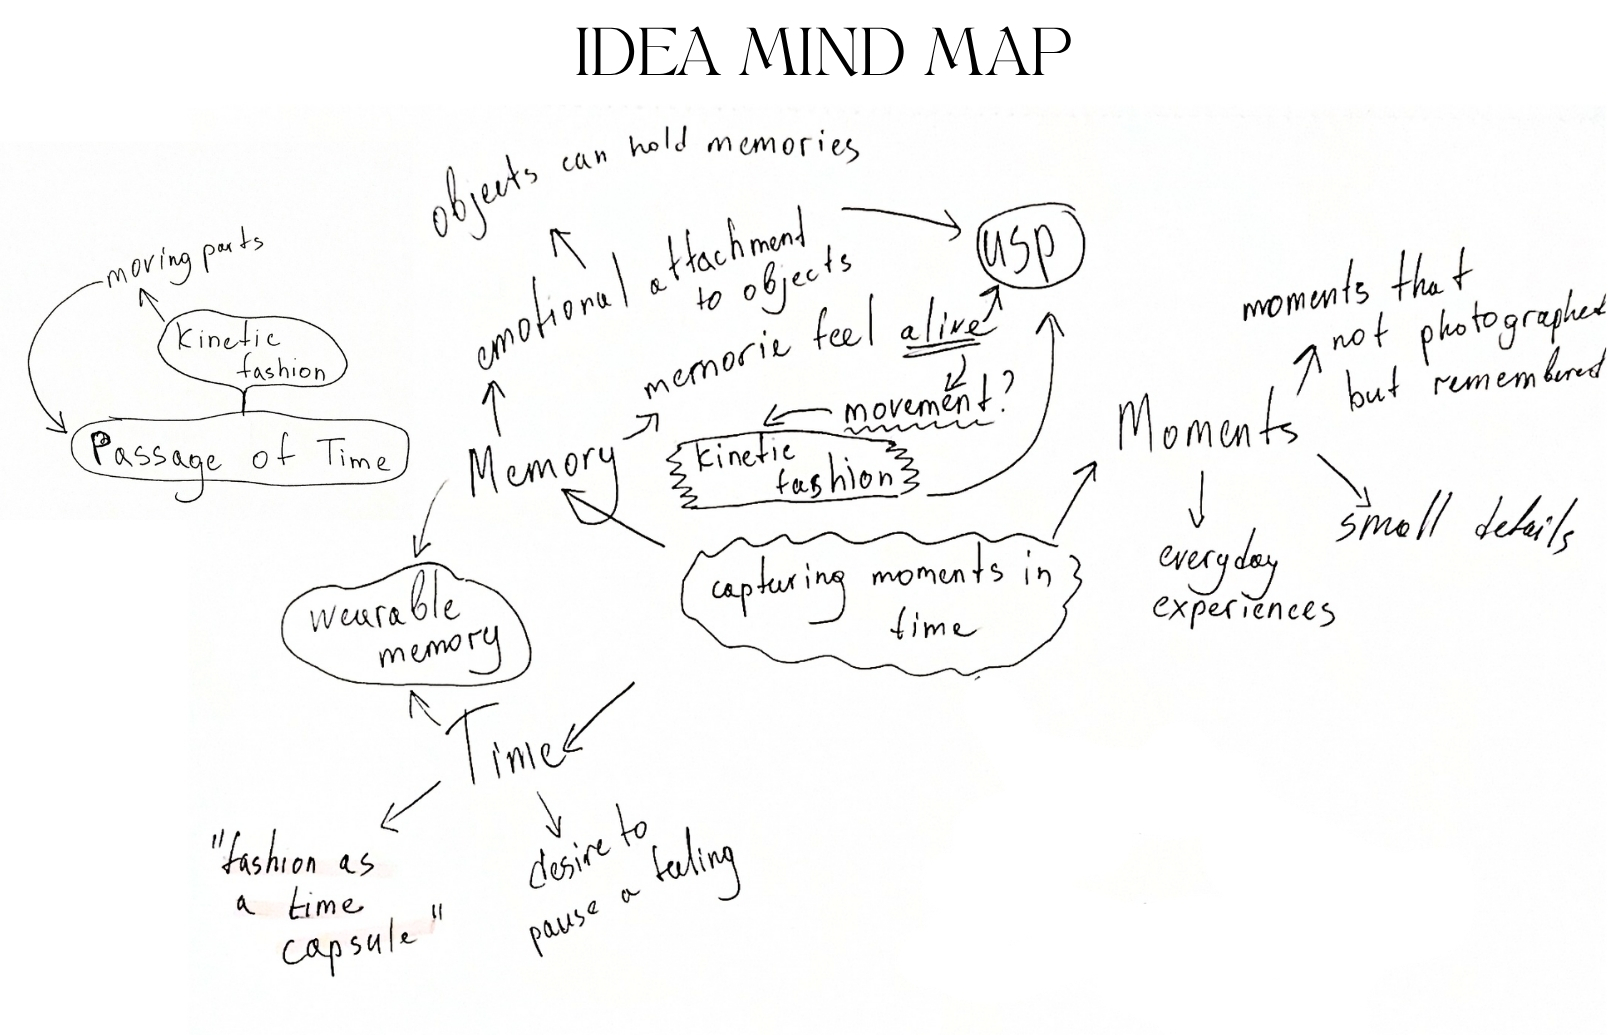 IDEA MIND MAP
objects can hold memories
emotional attachment
to objects
usp
moving parts
Kinetic
fashion
Passage of Time
memorie feel alive
movement?
kinetic
fashion
Memory
moments that
not photographed
but remembered
Moments
small details
everyday
experiences
capturing moments in
time
wearable
memory
Time
"fashion as
a time
capsule"
desire to
pause a feeling